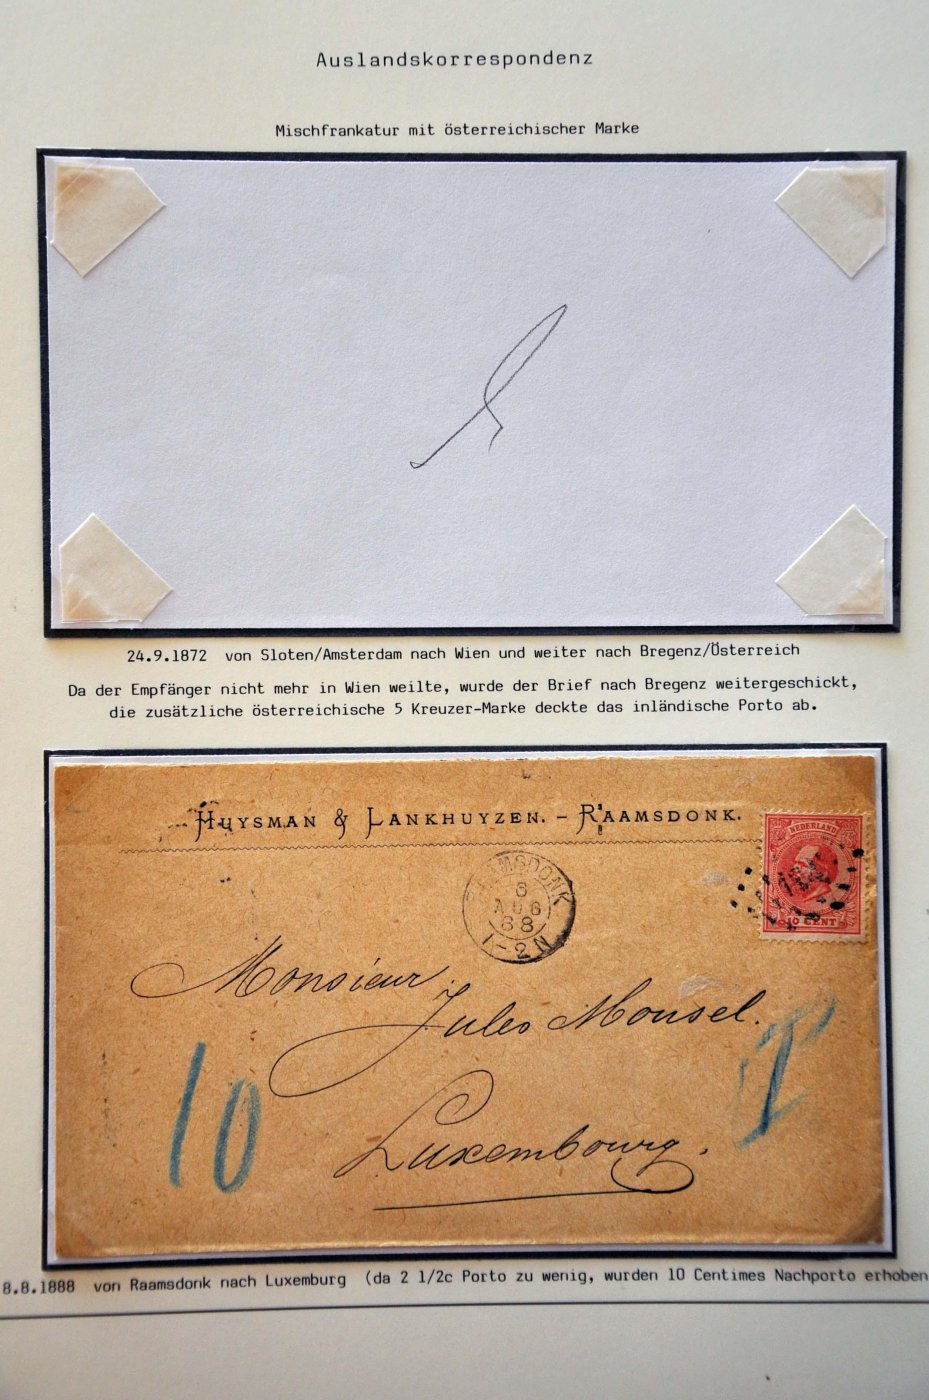 Auslandskorrespondenz
Mischfrankatur mit österreichischer Marke
24.9.1872 von Sloten/Amsterdam nach Wien und weiter nach Bregenz/Österreich
Da der Empfänger nicht mehr in Wien weilte, wurde der Brief nach Bregenz weitergeschickt,
die zusätzliche österreichische 5 Kreuzer-Marke deckte das inländische Porto ab.
HUYSMAN & LANKHUYZEN. - RAAMSDONK.
NEDERLAND
10 CENT
RAAMSDONK
8
AUG
88
1-2N
Monsieur
Jules Mousel.
Luxembourg.
10
T
8.8.1888 von Raamsdonk nach Luxemburg (da 2 1/2c Porto zu wenig, wurden 10 Centimes Nachporto erhoben